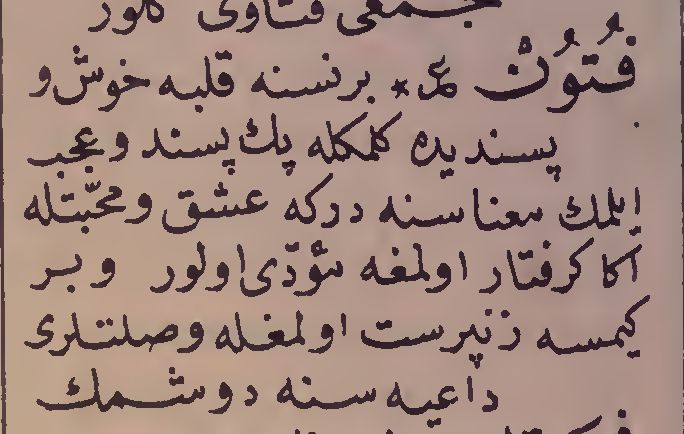 جمعی فتاوی كلور
فُتُونْ ع م * برنسنه قلبه خوش و
پسندیده كلمكله پك پسند و عجب
ایلمك معناسنه در كه عشق و محبّتله
اكا كرفتار اولمغه مؤدّی اولور و بر
كیمسه زنپرست اولمغله وصلتلری
داعیه سنه دوشمك